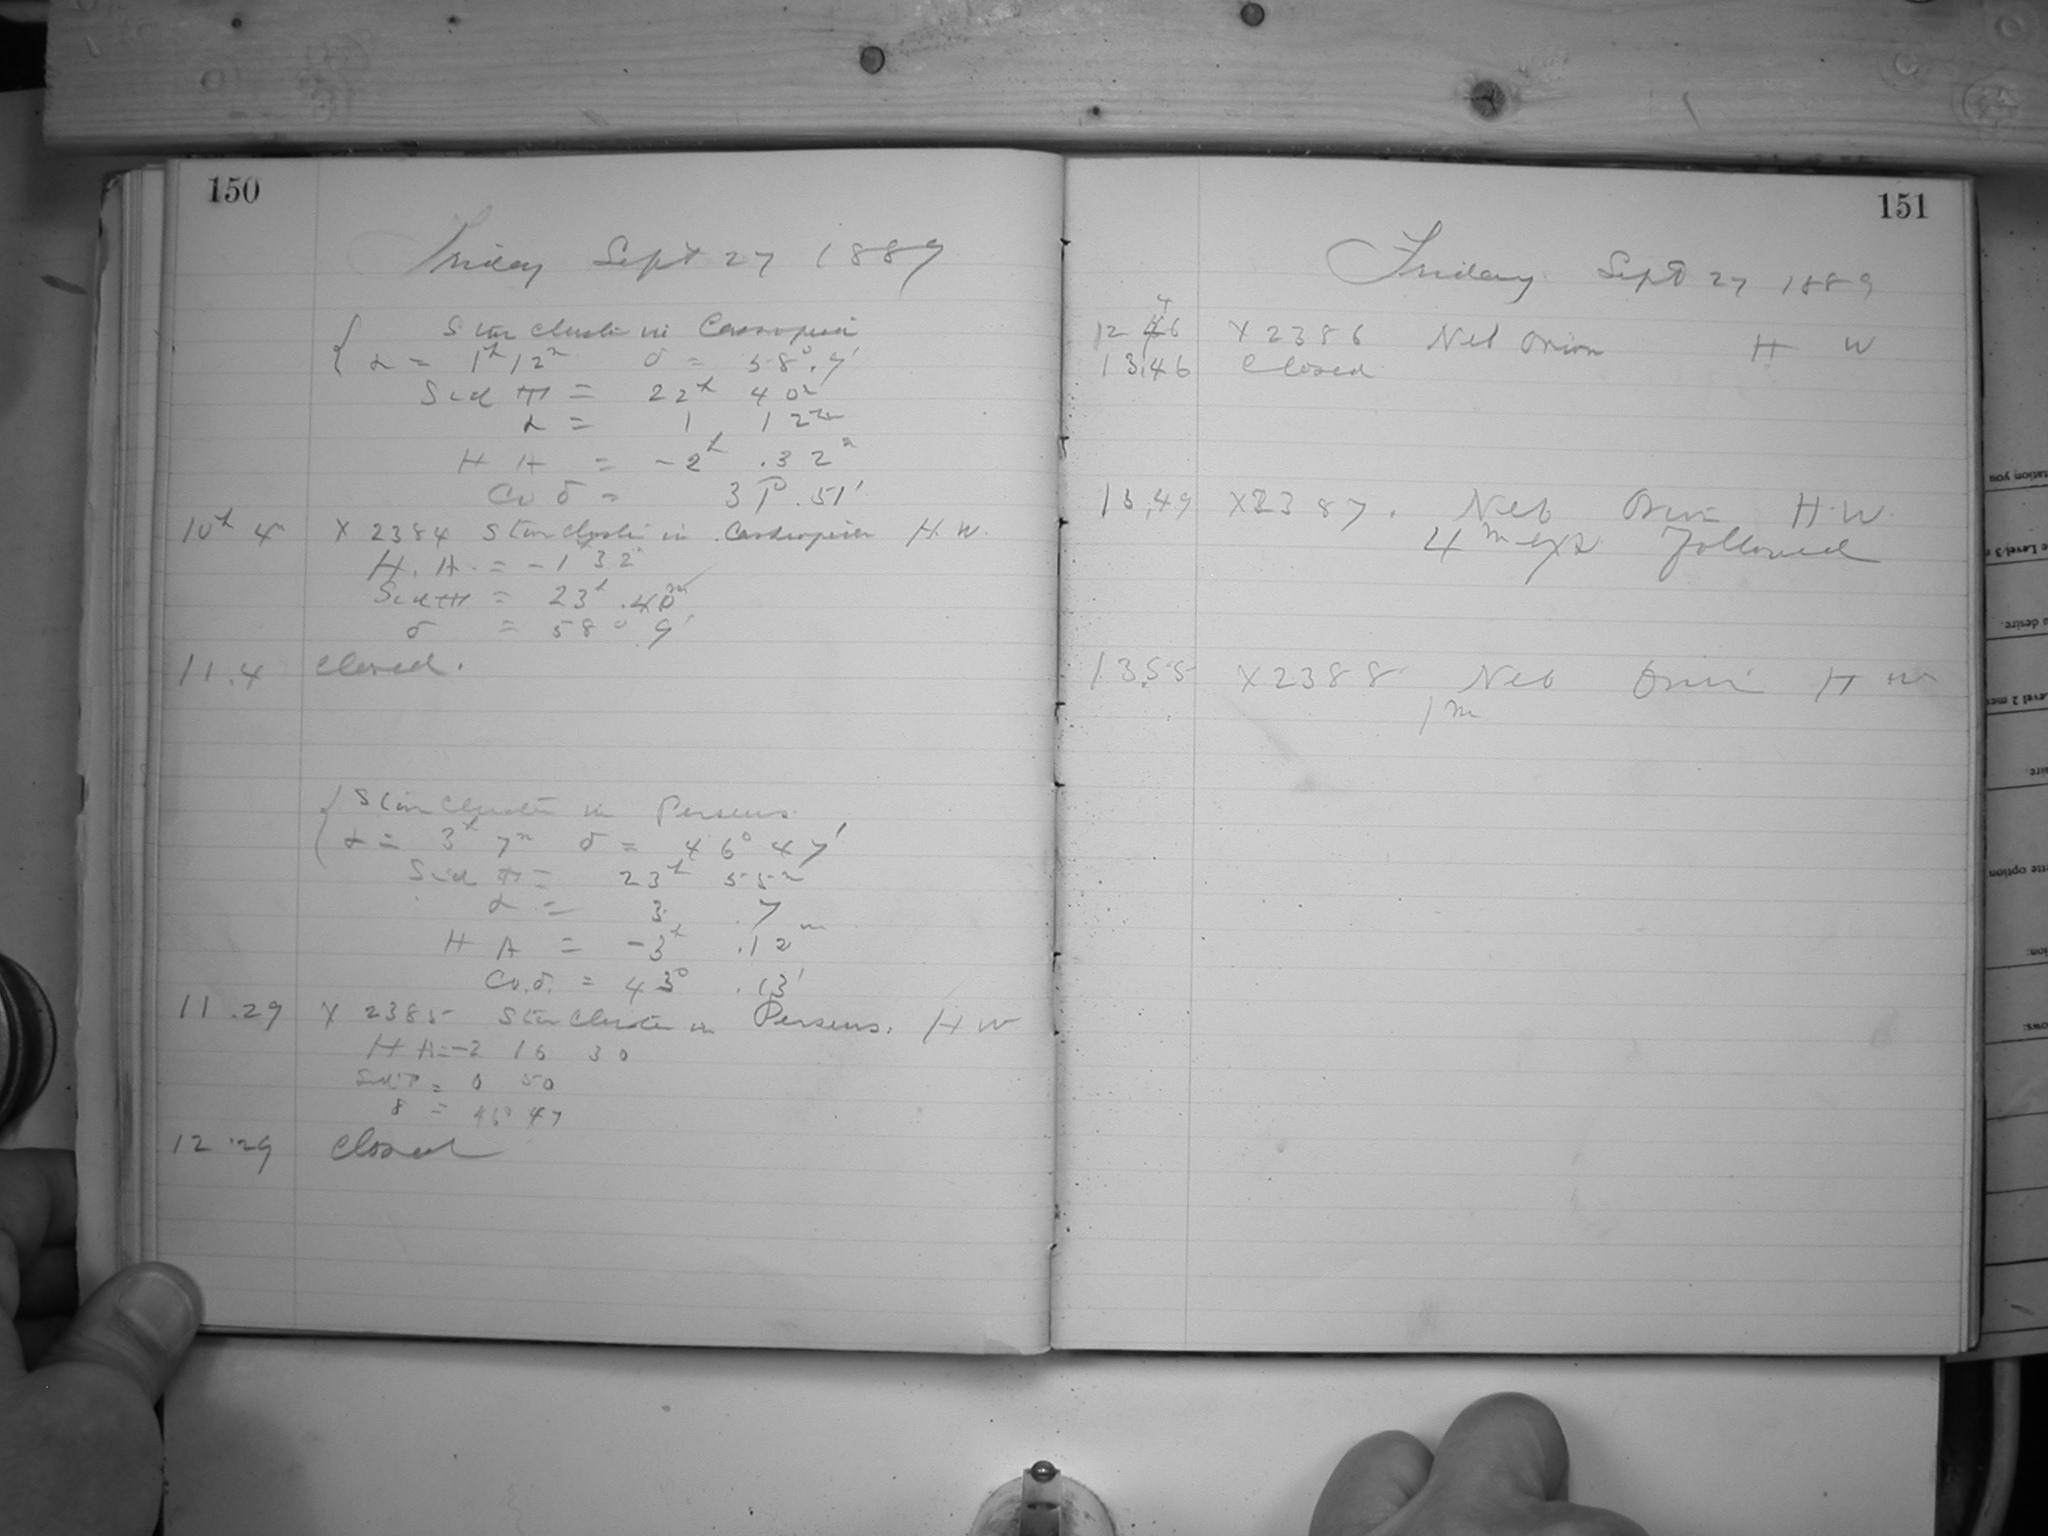 150
Friday Sept 27 1889
Star cluster in Cassiopeia
α = 1h 12m δ = 58°.9'
Sid T = 22h 40m
α = 1 12m
H A = -2h .32m
Co δ = 31° .51'
10h 4m X 2384 Star cluster in Cassiopeia H W.
H. A. = -1h 32
Sid T = 23h .40m
δ = 58° 9'
11.4 Closed.
Star cluster in Perseus
α = 3h 7m δ = 46° 47'
Sid T = 23h 55m
α = 3 .7
H A = -3h .12m
Co. δ. = 43° .13'
11.29 X 2385 Star Cluster in Perseus. H W
H A = -2 16 30
Sid T = 0 50
δ = 46° 47
12.29 Closed
151
Friday Sept 27 1889
12 46 X 2386 Neb Orion H W
13.46 Closed
13.49 X2387. Neb Orion H.W.
4m exp. followed
13.55 X2388 Neb Orion H W
1m